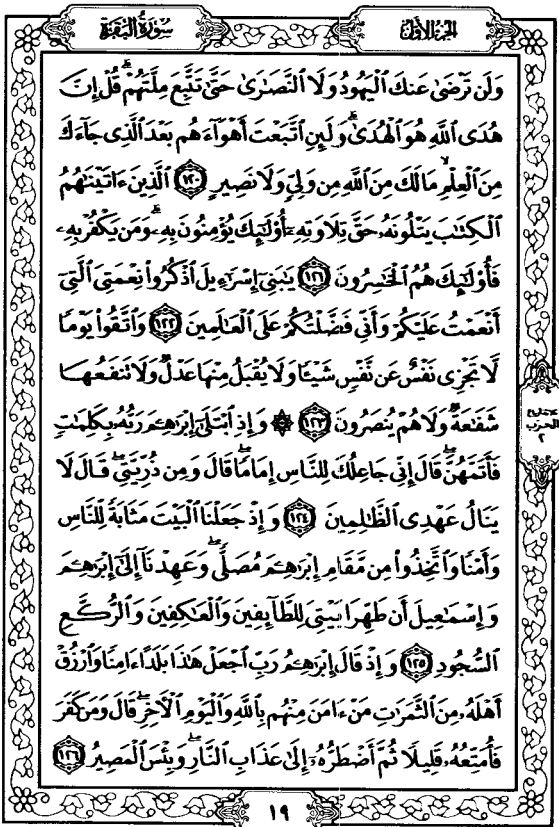 سُورَةُ البَقَرَةِ
الجُزءُ الأوَّلُ
وَلَن تَرْضَىٰ عَنكَ ٱلْيَهُودُ وَلَا ٱلنَّصَٰرَىٰ حَتَّىٰ تَتَّبِعَ مِلَّتَهُمْ ۗ قُلْ إِنَّ
هُدَى ٱللَّهِ هُوَ ٱلْهُدَىٰ ۗ وَلَئِنِ ٱتَّبَعْتَ أَهْوَآءَهُم بَعْدَ ٱلَّذِى جَآءَكَ
مِنَ ٱلْعِلْمِ ۙ مَا لَكَ مِنَ ٱللَّهِ مِن وَلِىٍّ وَلَا نَصِيرٍ ١٢٠ ٱلَّذِينَ ءَاتَيْنَٰهُمُ
ٱلْكِتَٰبَ يَتْلُونَهُۥ حَقَّ تِلَاوَتِهِۦٓ أُو۟لَٰٓئِكَ يُؤْمِنُونَ بِهِۦ ۗ وَمَن يَكْفُرْ بِهِۦ
فَأُو۟لَٰٓئِكَ هُمُ ٱلْخَٰسِرُونَ ١٢١ يَٰبَنِىٓ إِسْرَٰٓءِيلَ ٱذْكُرُوا۟ نِعْمَتِىَ ٱلَّتِىٓ
أَنْعَمْتُ عَلَيْكُمْ وَأَنِّى فَضَّلْتُكُمْ عَلَى ٱلْعَٰلَمِينَ ١٢٢ وَٱتَّقُوا۟ يَوْمًا
لَّا تَجْزِى نَفْسٌ عَن نَّفْسٍ شَيْـًٔا وَلَا يُقْبَلُ مِنْهَا عَدْلٌ وَلَا تَنفَعُهَا
شَفَٰعَةٌ وَلَا هُمْ يُنصَرُونَ ١٢٣ ۞ وَإِذِ ٱبْتَلَىٰٓ إِبْرَٰهِـۧمَ رَبُّهُۥ بِكَلِمَٰتٍ
فَأَتَمَّهُنَّ ۖ قَالَ إِنِّى جَاعِلُكَ لِلنَّاسِ إِمَامًا ۖ قَالَ وَمِن ذُرِّيَّتِى ۖ قَالَ لَا
يَنَالُ عَهْدِى ٱلظَّٰلِمِينَ ١٢٤ وَإِذْ جَعَلْنَا ٱلْبَيْتَ مَثَابَةً لِّلنَّاسِ
وَأَمْنًا وَٱتَّخِذُوا۟ مِن مَّقَامِ إِبْرَٰهِـۧمَ مُصَلًّى ۖ وَعَهِدْنَآ إِلَىٰٓ إِبْرَٰهِـۧمَ
وَإِسْمَٰعِيلَ أَن طَهِّرَا بَيْتِىَ لِلطَّآئِفِينَ وَٱلْعَٰكِفِينَ وَٱلرُّكَّعِ
ٱلسُّجُودِ ١٢٥ وَإِذْ قَالَ إِبْرَٰهِـۧمُ رَبِّ ٱجْعَلْ هَٰذَا بَلَدًا ءَامِنًا وَٱرْزُقْ
أَهْلَهُۥ مِنَ ٱلثَّمَرَٰتِ مَنْ ءَامَنَ مِنْهُم بِٱللَّهِ وَٱلْيَوْمِ ٱلْـَٔاخِرِ ۖ قَالَ وَمَن كَفَرَ
فَأُمَتِّعُهُۥ قَلِيلًا ثُمَّ أَضْطَرُّهُۥٓ إِلَىٰ عَذَابِ ٱلنَّارِ ۖ وَبِئْسَ ٱلْمَصِيرُ ١٢٦
الحزب
٢
١٩